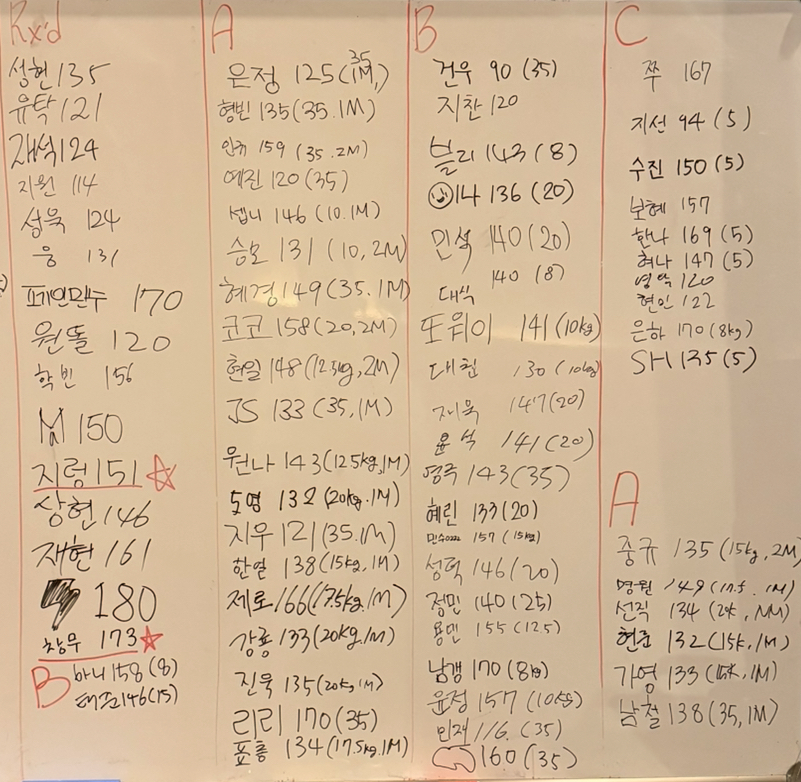 Rx'd
성현 135
유탁 121
재석 124
지원 114
성욱 124
웅 131
170
원똘 120
학빈 156
M 150
지렁 151
상현 146
재현 161
180
창우 173
B
하니 158 (8)
146 (15)
A
은정 125 (35, 1M)
형빈 135 (35. 1M)
인규 159 (35. 2M)
예진 120 (35)
셉니 146 (10. 1M)
승모 131 (10, 2M)
혜경 149 (35. 1M)
코코 158 (20, 2M)
현일 148 (12.5kg, 2M)
JS 133 (35, 1M)
원나 143 (12.5kg, 1M)
도영 132 (20kg. 1M)
지우 121 (35. 1M)
한얼 138 (15kg, 1M)
제로 166 (17.5kg. 1M)
강룡 133 (20kg. 1M)
진욱 135 (20kg 1M)
리리 170 (35)
표흥 134 (17.5kg. 1M)
B
건우 90 (35)
지찬 120
블리 143 (8)
14 136 (20)
민석 140 (20)
대식 140 (8)
또위이 141 (10kg)
대현 130 (10kg)
재욱 147 (20)
윤석 141 (20)
영주 143 (35)
혜린 133 (20)
157 (15kg)
성덕 146 (20)
정민 140 (25)
용민 155 (12.5)
남갱 170 (8kg)
윤정 157 (10kg)
민재 116. (35)
160 (35)
C
쭈 167
지선 94 (5)
수진 150 (5)
보혜 157
한나 169 (5)
허나 147 (5)
120
현인 122
은하 170 (8kg)
SH 135 (5)
A
중규 135 (15kg, 2M)
명원 149
선직 134
현준 132 (15k, 1M)
가영 133 (15k, 1M)
남철 138 (35, 1M)